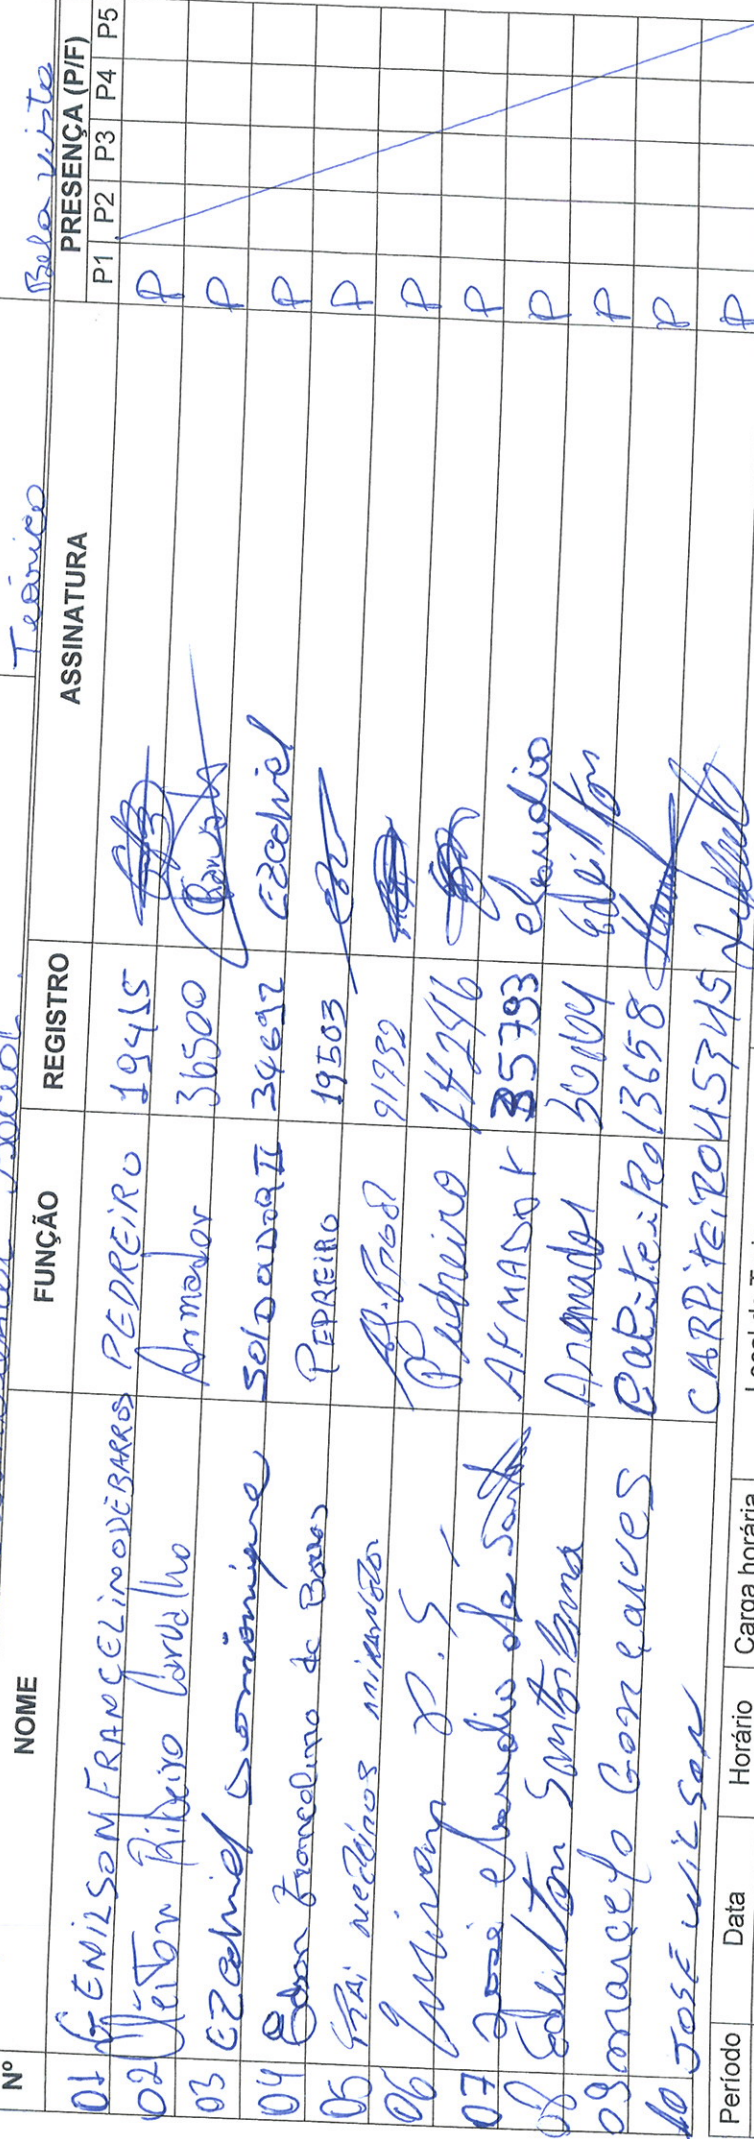 Teórico Bela Vista
Nº NOME FUNÇÃO REGISTRO ASSINATURA PRESENÇA (P/F)
P1 P2 P3 P4 P5
01 GENILSOM FRANCELINO DE BARROS PEDREIRO 19415 P
02 Cleiton Ribeiro Carvalho Armador 36500 P
03 Ezechiel SOLDADOR II 34692 Ezechiel P
04 Edson Francelino de Barros PEDREIRO 19503 P
05 91932 P
06 Pedreiro 14296 P
07 José Claudio da Santos ARMADOR 35793 claudio P
08 Edeilton Santos Armador Edeilton P
09 marcelo Gonçalves 13658 P
10 JOSÉ WILSON CARPiTEiRO 45345 P
Período Data Horário Carga horária